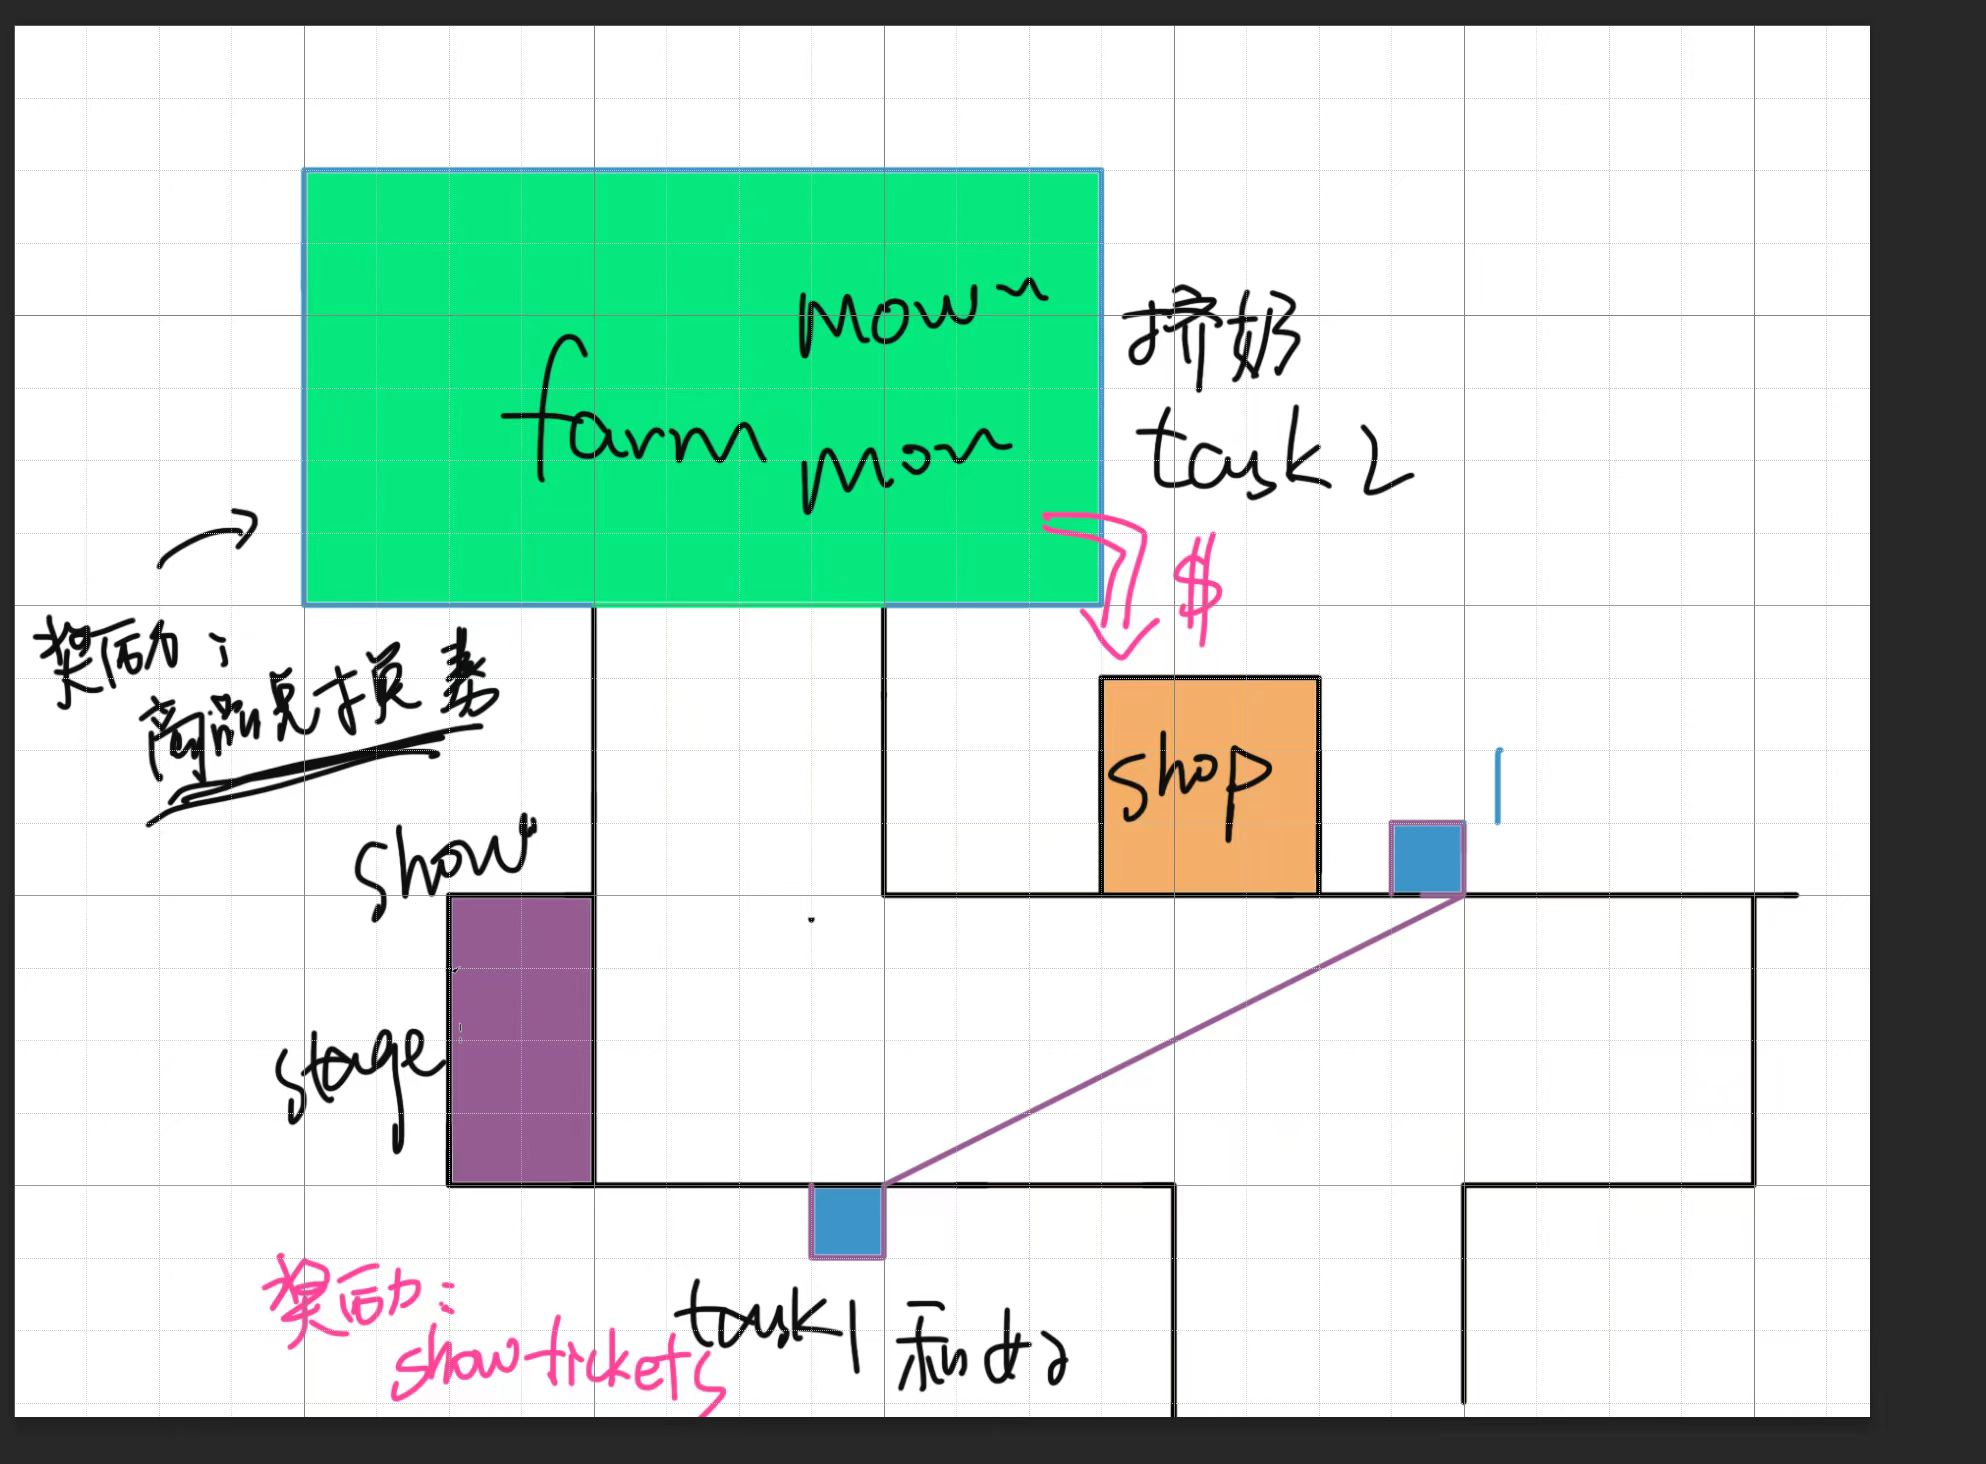 mow~
farm
mon
挤奶
task2
$
奖励:
商品兑换券
shop
show
stage
奖励:
show tickets
task1